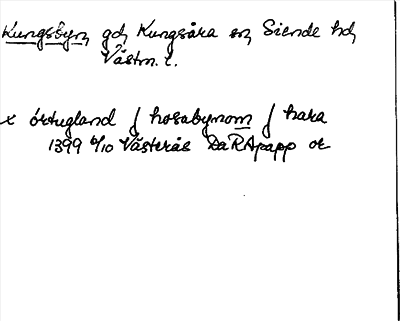 Kungsbyn, gd, Kungsåra sn, Siende hd,
Västm. l.
x örtugland j hosabynom j hara
1399 6/10 Västerås DaRApapp or